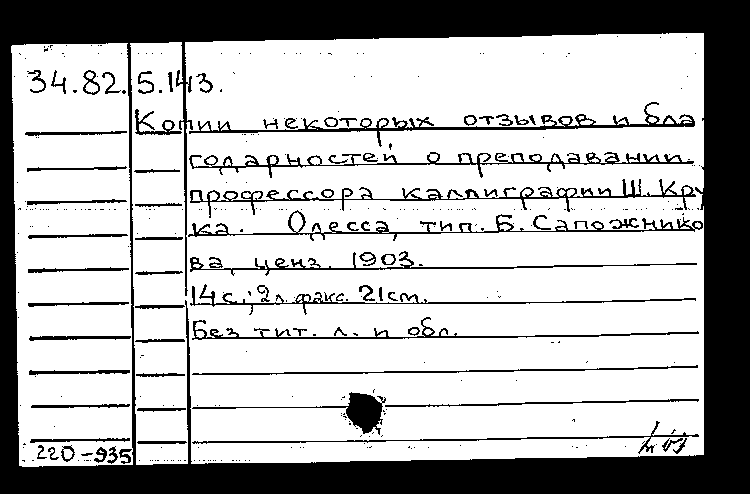 34.82.5.143.
Копии некоторых отзывов и бла-
годарностей о преподавании
профессора каллиграфии Ш. Кру
ка. Одесса, тип. Б. Сапожнико
ва, ценз. 1903.
14 с.; 2 л. факс. 21 см.
Без тит. л. и обл.
220-935